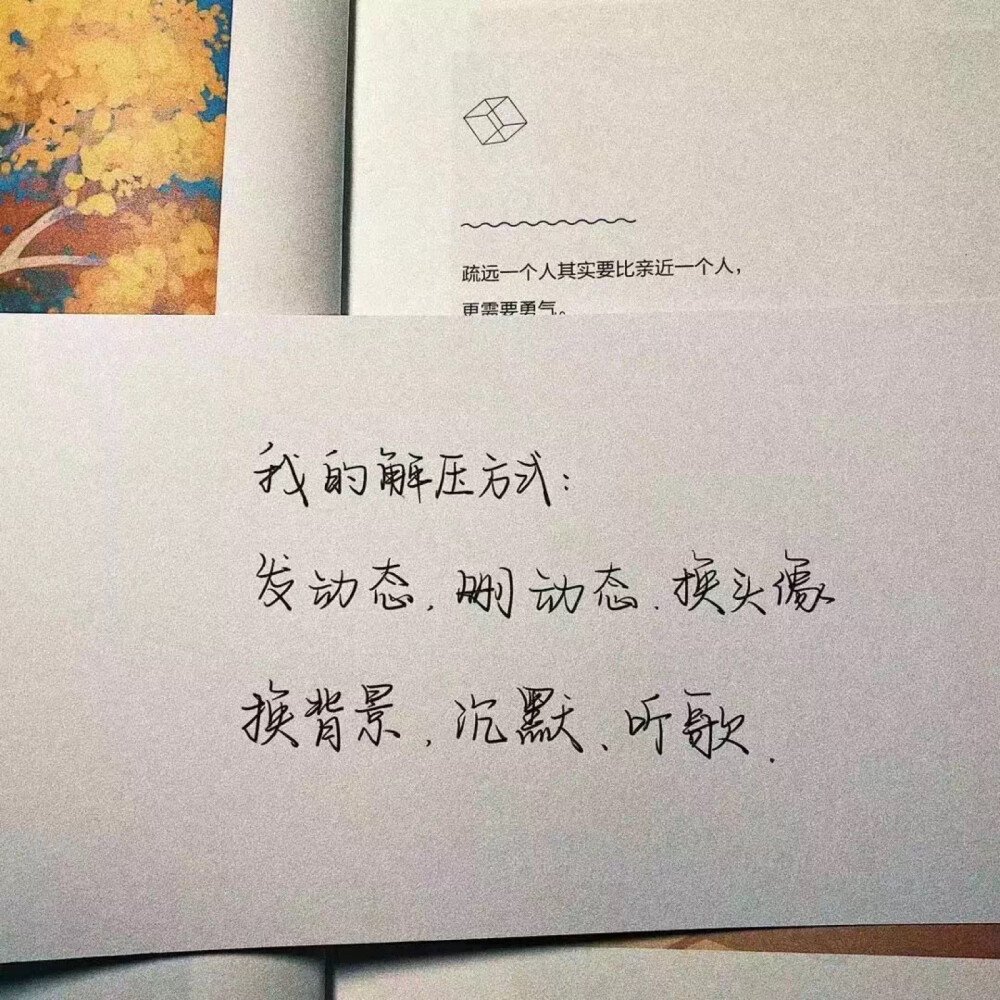 疏远一个人其实要比亲近一个人，
更需要勇气。
我的解压方式：
发动态，删动态、换头像
换背景，沉默、听歌.